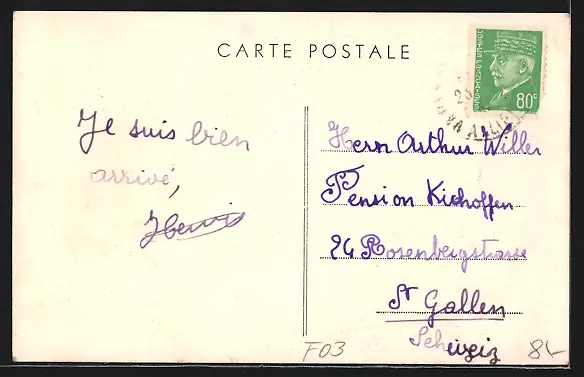 CARTE POSTALE
80c
Je suis bien
arrivé,
Henri
Herrn Arthur Willer
Pension Kickhoffen
24 Rosenbergstrasse
St Gallen
Schweiz
F03
8L-